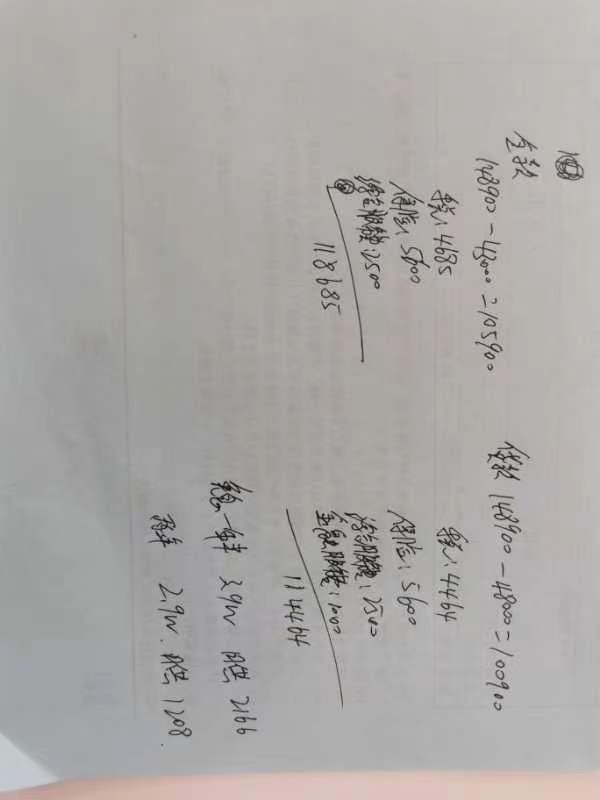 全款
148900-43000=105900
税:4685
保险:5600
综合服务:2500
118685
贷款 148900-48000=100900
税:4464
保险:5600
综合服务:2500
金融服务:1000
114464
免息一年 月供 2166
两年 2.9w. 月供 1208